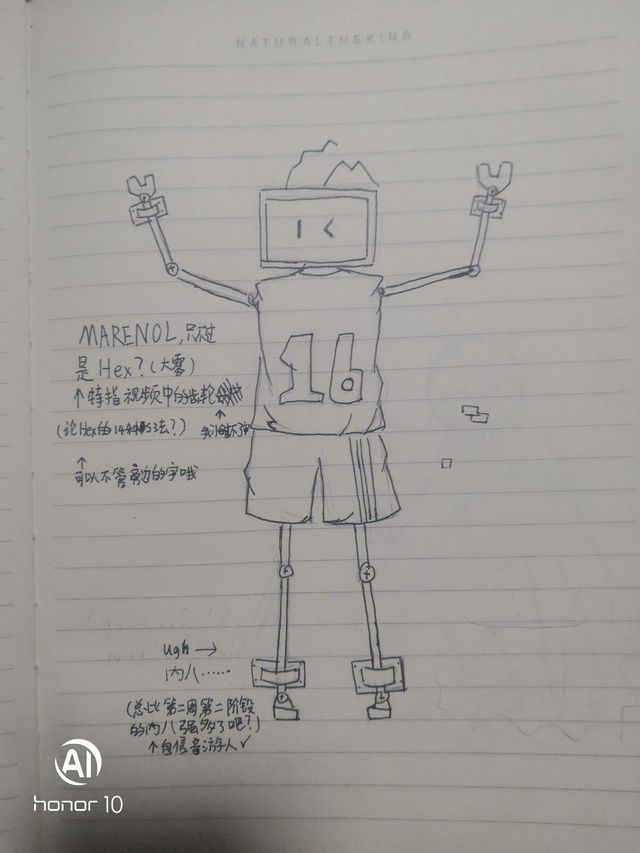 NATURALTHEKING
16
MARENOL,只不过
是Hex?(大雾)
↑特指视频中的齿轮
(论Hex的144种S法?)
↑
↑
可以不管旁边的字哦
ugh →
内八……
(总比第二周第二阶段
的内八强多了吧?)
↑自信音游人✓
AI
honor 10